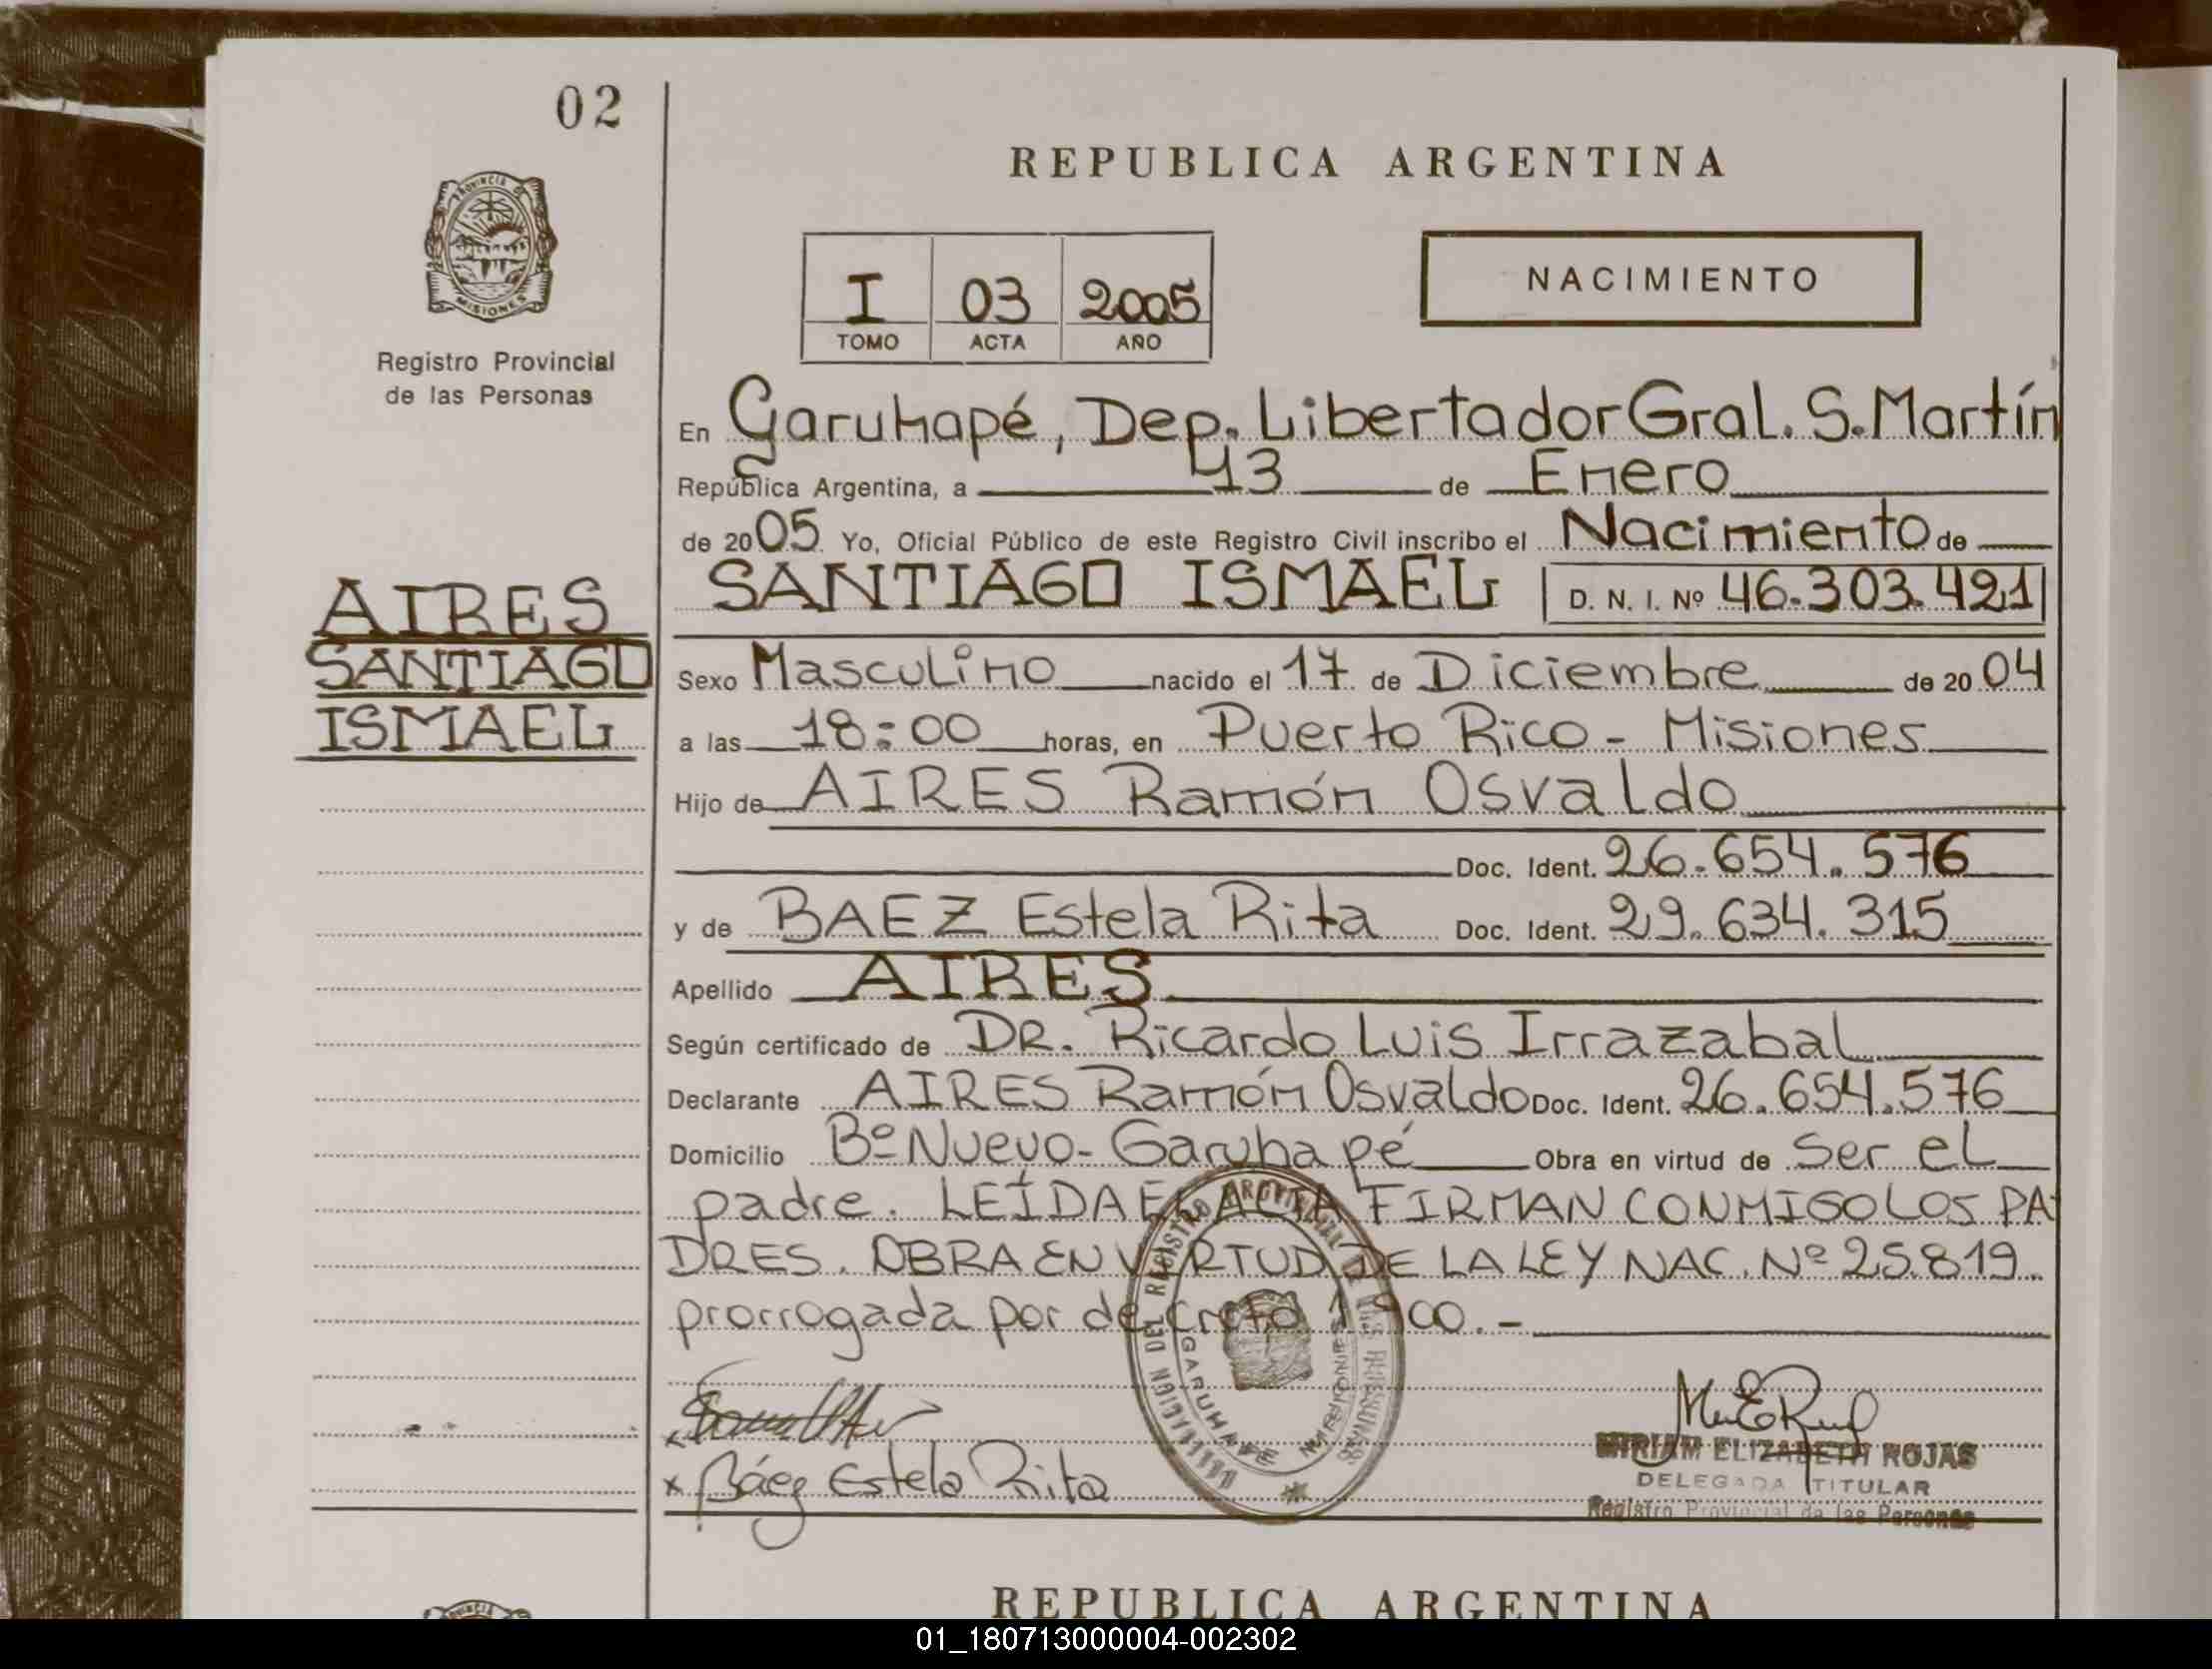 02
REPUBLICA ARGENTINA
PROVINCIA DE
MISIONES
NACIMIENTO
I 03 2005
TOMO ACTA AÑO
Registro Provincial
de las Personas
En Garuhapé, Dep. Libertador Gral. S. Martín
República Argentina, a 13 de Enero
de 2005 Yo, Oficial Público de este Registro Civil inscribo el Nacimiento de
SANTIAGO ISMAEL D. N. I. Nº 46.303.421
AIRES
SANTIAGO
ISMAEL
Sexo Masculino nacido el 17 de Diciembre de 2004
a las 18:00 horas, en Puerto Rico - Misiones
Hijo de AIRES Ramón Osvaldo
Doc. Ident. 26.654.576
y de BAEZ Estela Rita Doc. Ident. 29.634.315
Apellido AIRES
Según certificado de DR. Ricardo Luis Irrazabal
Declarante AIRES Ramón Osvaldo Doc. Ident. 26.654.576
Domicilio Bº Nuevo - Garuhapé Obra en virtud de ser el
padre. LEÍDA EL ACTA FIRMAN CONMIGO LOS PA
DRES. OBRA EN VIRTUD DE LA LEY NAC. Nº 25.819.
prorrogada por decreto
DEL REGISTRO PROVINCIAL DE LAS PERSONAS
GARUHAPE MISIONES
x Báez Estela Rita
MIRIAM ELIZABETH ROJAS
DELEGADA TITULAR
Registro Provincial de las Personas
REPUBLICA ARGENTINA
01_180713000004-002302